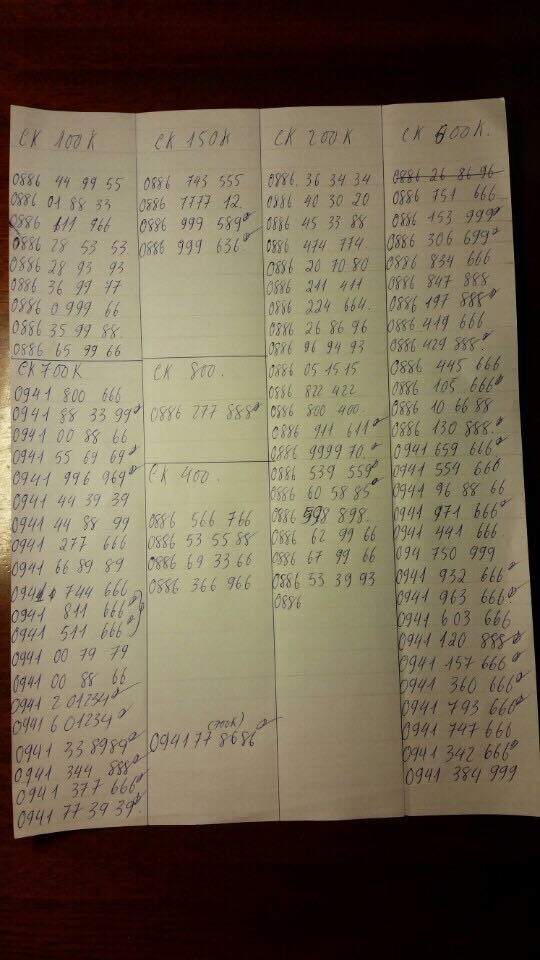 CK 100K
0886 44 99 55
0886 01 88 33
0886 111 966
0886 28 53 53
0886 28 93 93
0886 36 99 77
0886 0 999 66
0886 35 99 88.
0886 65 99 66
CK 700K
0941 800 666
0941 88 33 99
0941 00 88 66
0941 55 69 69
0941 996 969
0941 44 39 39
0941 44 88 99
0941 277 666
0941 66 89 89
0941 744 666
0941 811 666
0941 511 666
0941 00 79 79
0941 00 88 66
0941 2 01234
0941 6 01234
0941 33 8989
0941 344 888
0941 377 666
0941 77 39 39
CK 150K
0886 743 555
0886 1777 12.
0886 999 589
0886 999 636
CK 800.
0886 277 888
CK 400.
0886 566 766
0886 53 55 88
0886 69 33 66
0886 366 966
(700K)
0941 77 8686
CK 200K
0886. 36 34 34
0886 40 30 20
0886 45 33 88
0886 474 774.
0886 20 70 80
0886 211 411
0886 224 664.
0886 26 86 96
0886 96 94 93
0886 05 15 15
0886 822 422
0886 800 400.
0886 911 611
0886 9999 70.
0886 539 559
0886 60 58 85
0886 598 898.
0886 62 99 66
0886 67 99 66
0886 53 39 93
0886
CK 600K.
0886 26 86 96
0886 751 666
0886 153 999
0886 306 699
0886 834 666
0886 847 888
0886 197 888
0886 419 666
0886 429 888
0886 445 666
0886 105 666
0886 10 66 88
0886 130 888
0941 659 666
0941 554 666
0941 96 88 66
0941 971 666
0941 441 666
094 750 999
0941 932 666
0941 963 666
0941 603 666
0941 120 888
0941 157 666
0941 360 666
0941 793 666
0941 747 666
0941 342 666
0941 384 999